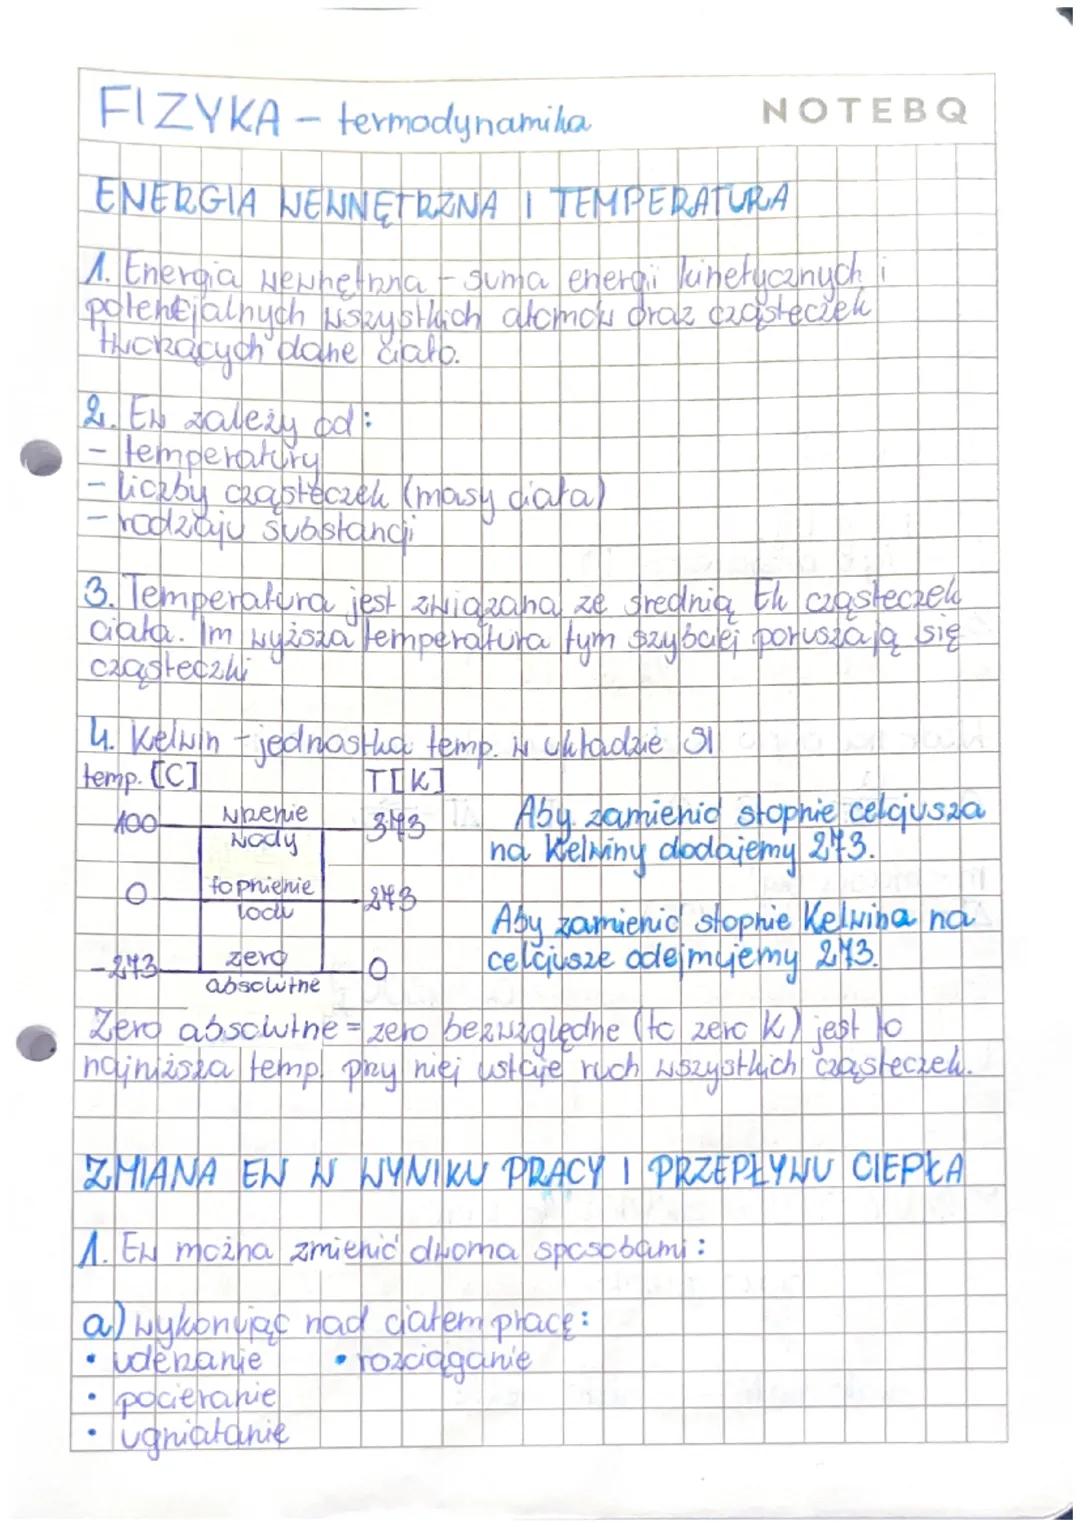 FIZYKA – termodynamika
NOTEBQ
ENERGIA WEWNĘTRZNA I TEMPERATURA
1. Energia wewnętrzna – suma energi kinetycznych i
potencjalnych wszystkich atomów oraz cząsteczek
tworzących dane ciało.
2. Ew zależy od:
– temperatury
– liczby cząsteczek (masy ciała)
– rodzaju substancji
3. Temperatura jest związana ze średnią Ek cząsteczek
ciała. Im wyższa temperatura tym szybciej poruszają się
cząsteczki
4. Kelwin – jednostka temp. w układzie SI
temp. [C] T[K]
100 wrzenie wody 373
0 topnienie lodu 273
-273 zero absolutne 0
Aby zamienić stopnie celcjusza
na Kelwiny dodajemy 273.
Aby zamienić stopnie Kelwina na
celcjusze odejmujemy 273.
Zero absolutne = zero bezwzględne (to zero K) jest to
najniższa temp. przy niej ustaje ruch wszystkich cząsteczek.
ZMIANA EW W WYNIKU PRACY I PRZEPŁYWU CIEPŁA
1. Ew można zmienić dwoma sposobami:
a) wykonując nad ciałem pracę:
• uderzanie • rozciąganie
• pocieranie
• ugniatanie